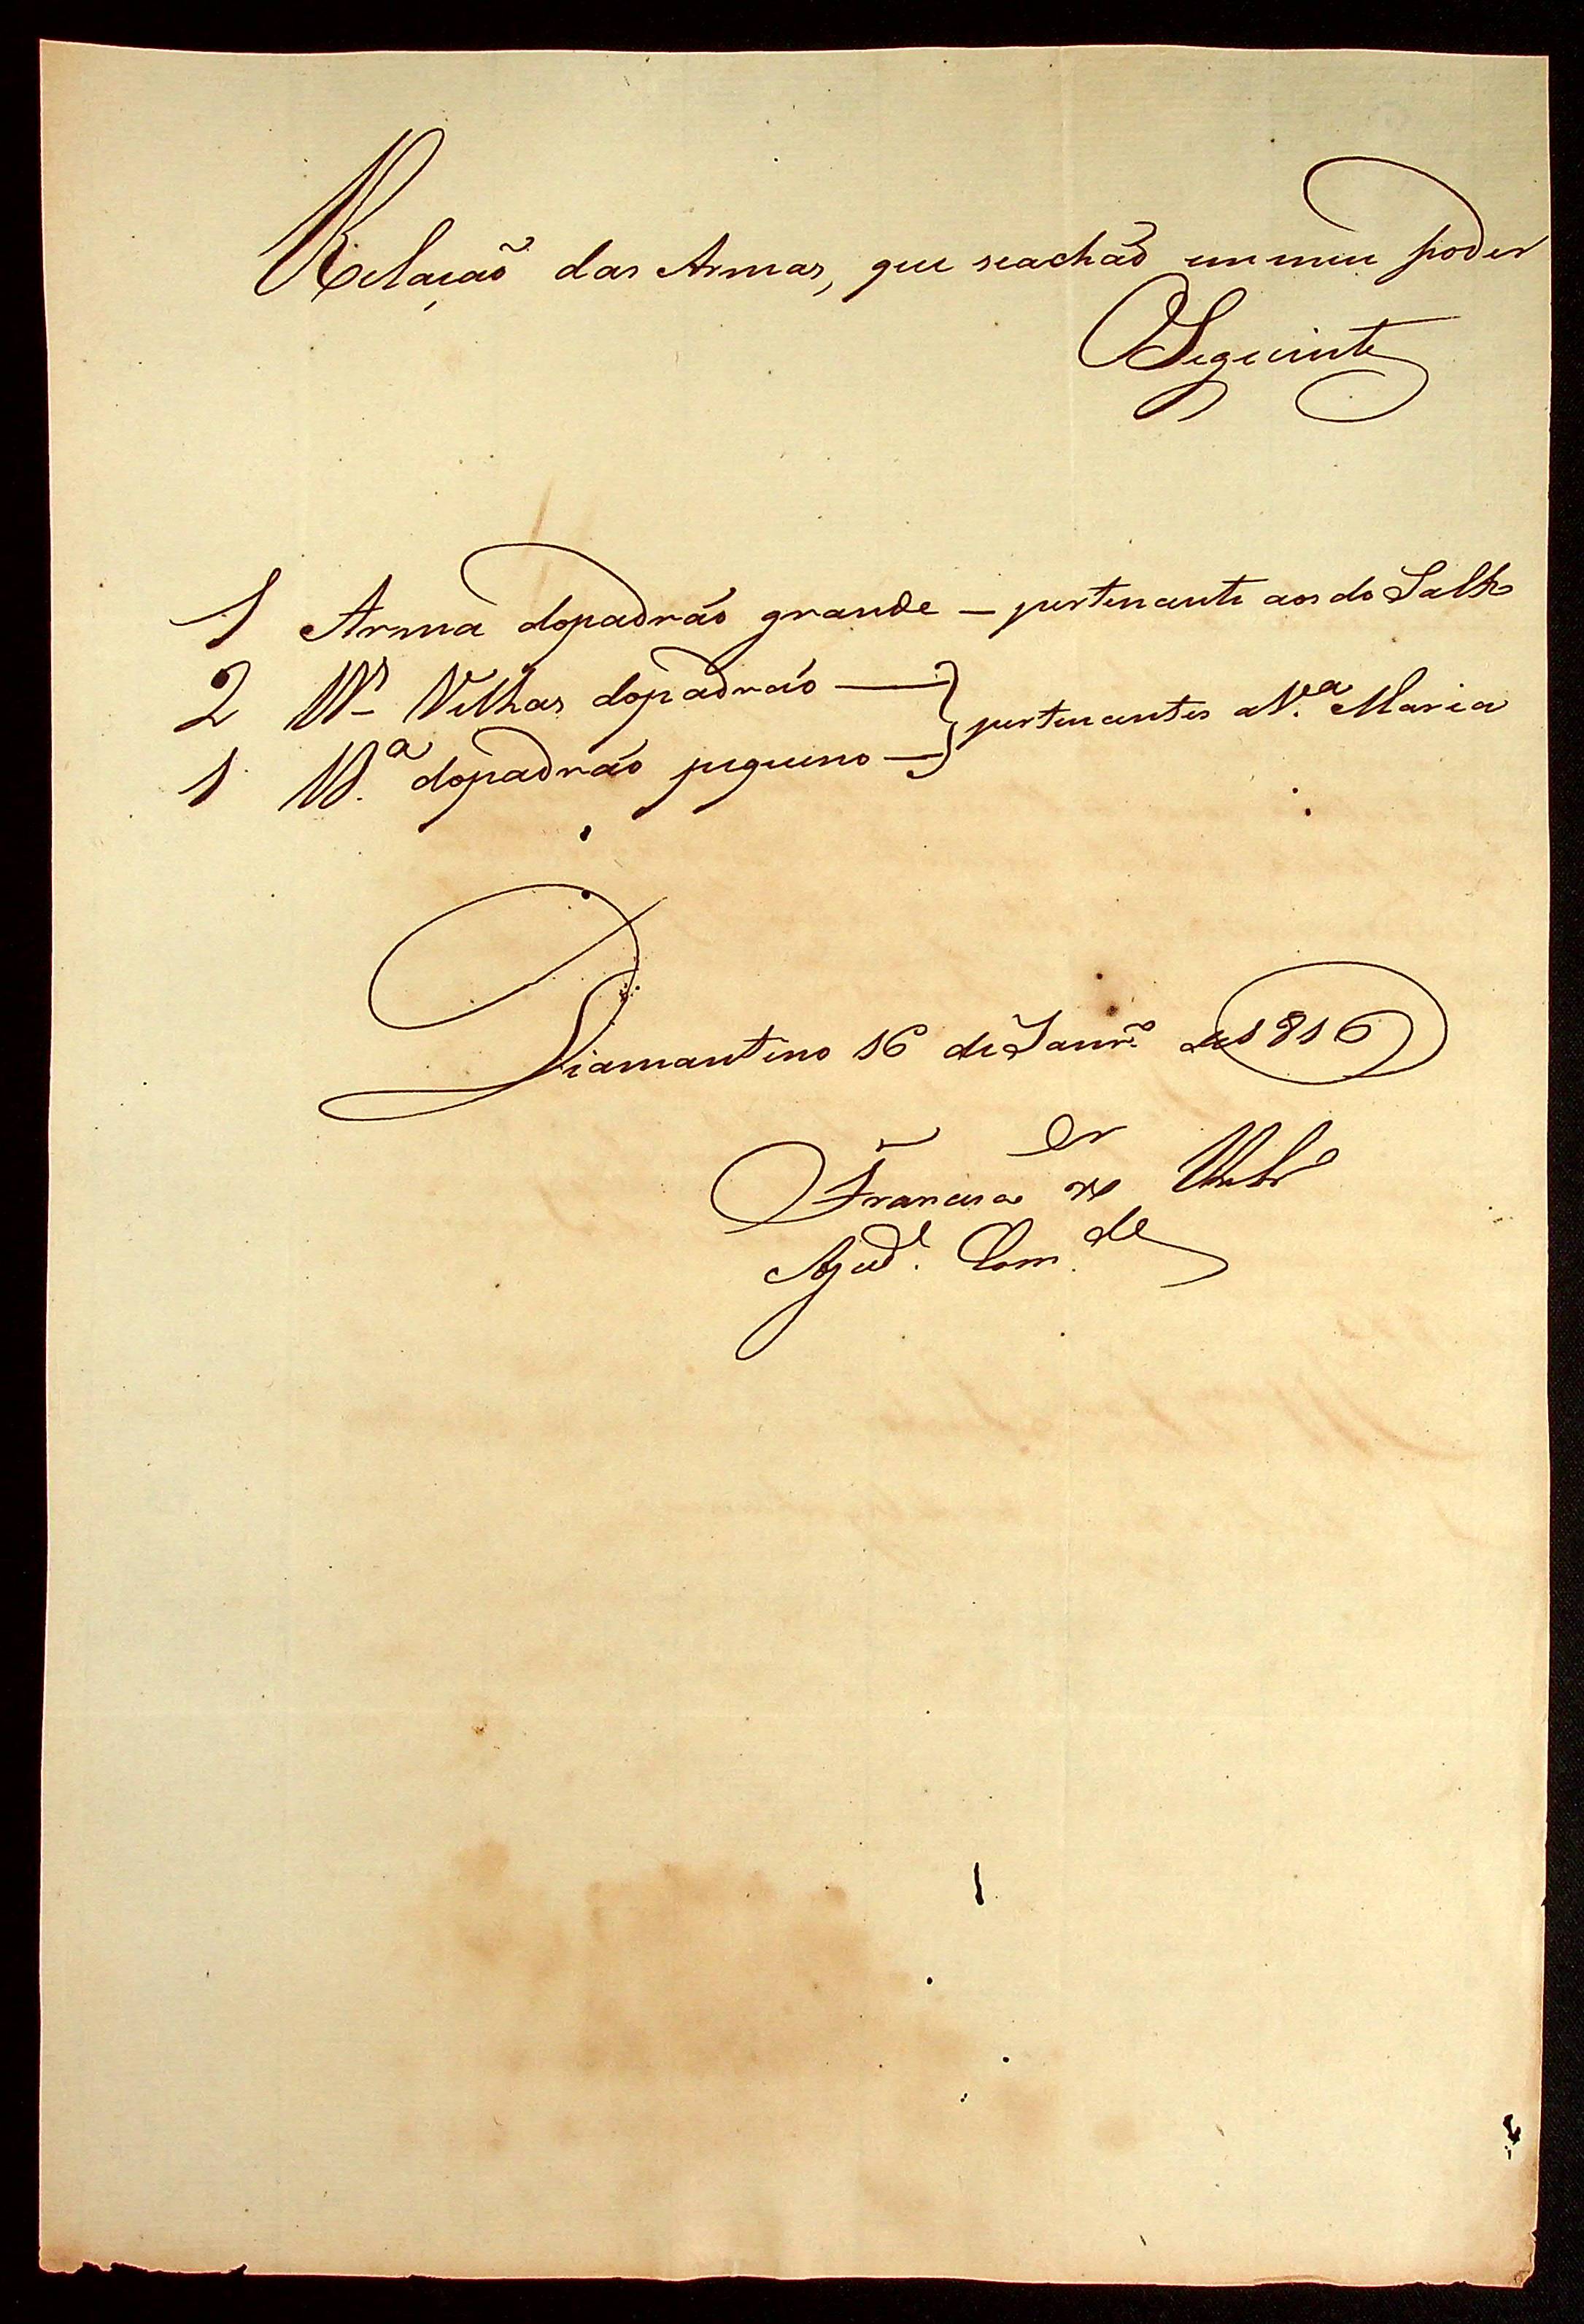 Relação das Armas, que seachão emmeu poder
Seguinte
1 Arma dopadrão grande – pertencente aos do Salto
2 Velhas dopadrão —
pertencentes aV.ª Maria
1 dopadrão pequeno —
Diamantino 16 de Janr.º de 1816
Francisco
Ajud.e Com.de